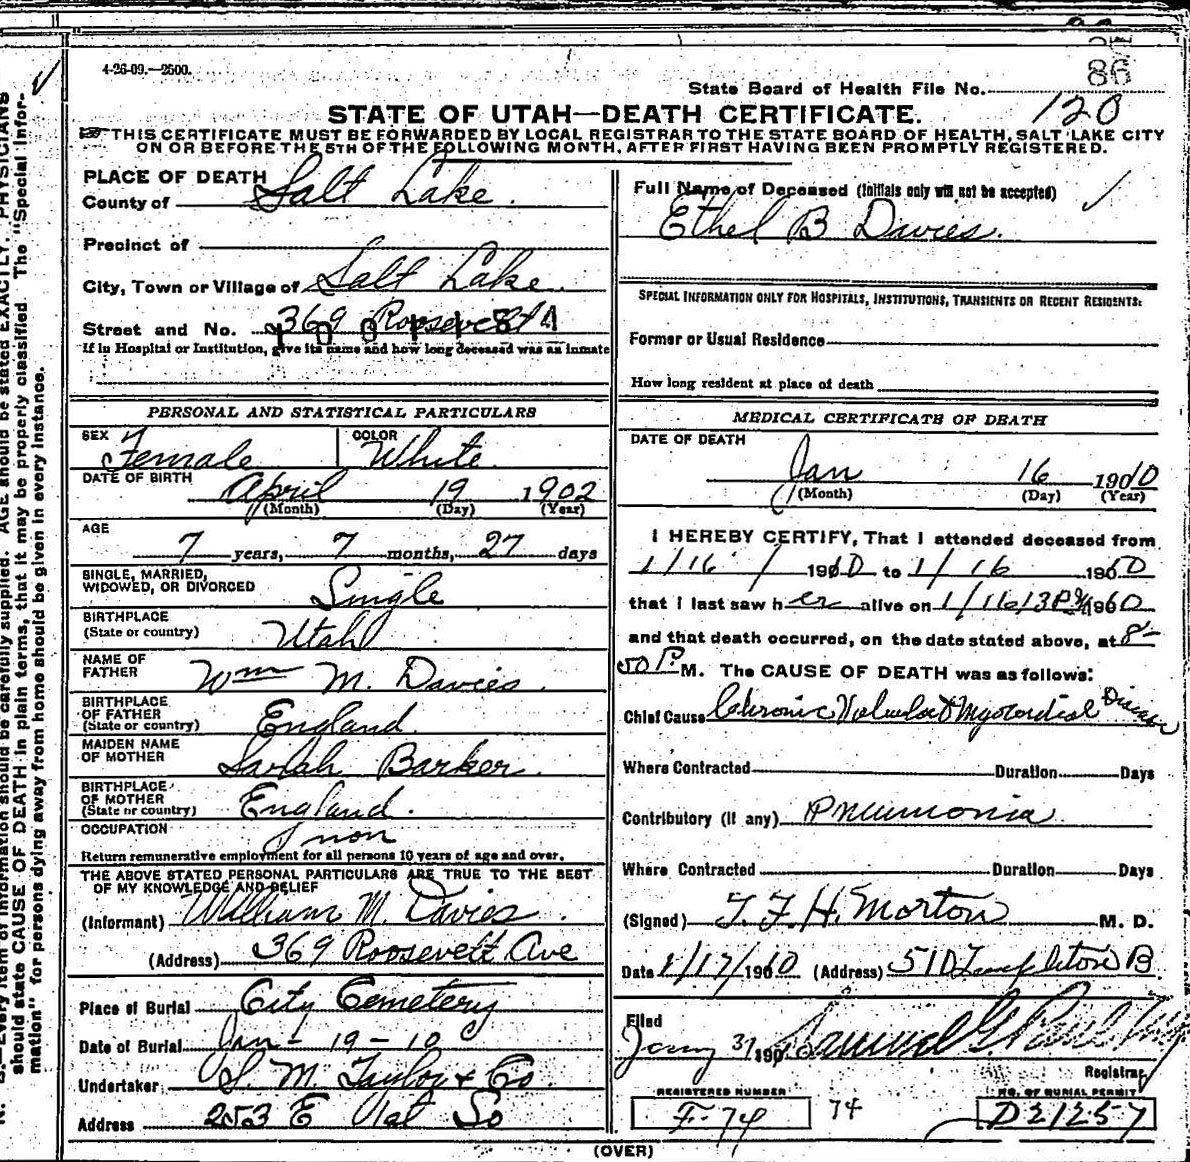 4-26-09.—2500.
86
State Board of Health File No.
120
STATE OF UTAH—DEATH CERTIFICATE.
THIS CERTIFICATE MUST BE FORWARDED BY LOCAL REGISTRAR TO THE STATE BOARD OF HEALTH, SALT LAKE CITY
ON OR BEFORE THE 5TH OF THE FOLLOWING MONTH, AFTER FIRST HAVING BEEN PROMPTLY REGISTERED.
PLACE OF DEATH
County of Salt Lake.
Precinct of
City, Town or Village of Salt Lake.
Street and No. 369 Roosevelt
If in Hospital or Institution, give its name and how long deceased was an inmate
PERSONAL AND STATISTICAL PARTICULARS
SEX Female COLOR White
DATE OF BIRTH April 19 1902
(Month) (Day) (Year)
AGE
7 years, 7 months, 27 days
SINGLE, MARRIED,
WIDOWED, OR DIVORCED Single
BIRTHPLACE
(State or country) Utah
NAME OF
FATHER Wm M. Davies.
BIRTHPLACE
OF FATHER
(State or country) England.
MAIDEN NAME
OF MOTHER Sarah Barker.
BIRTHPLACE
OF MOTHER
(State or country) England.
OCCUPATION non
Return remunerative employment for all persons 10 years of age and over.
THE ABOVE STATED PERSONAL PARTICULARS ARE TRUE TO THE BEST
OF MY KNOWLEDGE AND BELIEF
(Informant) William M. Davies.
(Address) 369 Roosevelt Ave
Place of Burial City Cemetery
Date of Burial Jan - 19 - 10
Undertaker S. M. Taylor & Co
Address 253 E So
Full Name of Deceased (Initials only will not be accepted)
Ethel B Davies.
SPECIAL INFORMATION ONLY FOR HOSPITALS, INSTITUTIONS, TRANSIENTS OR RECENT RESIDENTS:
Former or Usual Residence
How long resident at place of death
MEDICAL CERTIFICATE OF DEATH
DATE OF DEATH
Jan 16 1910
(Month) (Day) (Year)
I HEREBY CERTIFY, That I attended deceased from
1/16/ 1910 to 1/16 1910
that I last saw her alive on 1/16/3 P.M. 1910
and that death occurred, on the date stated above, at 8-
50 P. M. The CAUSE OF DEATH was as follows:
Chief Cause Chronic Valvular & Myocardial Disease
Where Contracted Duration Days
Contributory (if any) Pneumonia
Where Contracted Duration Days
(Signed) T. F. H. Morton M. D.
Date 1/17/1910 (Address) 510 Templeton B
Filed
Jany 31 190 Samuel G. Paul
Registrar
REGISTERED NUMBER
F-74
74
NO. OF BURIAL PERMIT
D21257
(OVER)
Every item of information should be carefully supplied. AGE should be stated EXACTLY. PHYSICIANS
should state CAUSE OF DEATH in plain terms, that it may be properly classified. The "Special Infor-
mation" for persons dying away from home should be given in every instance.